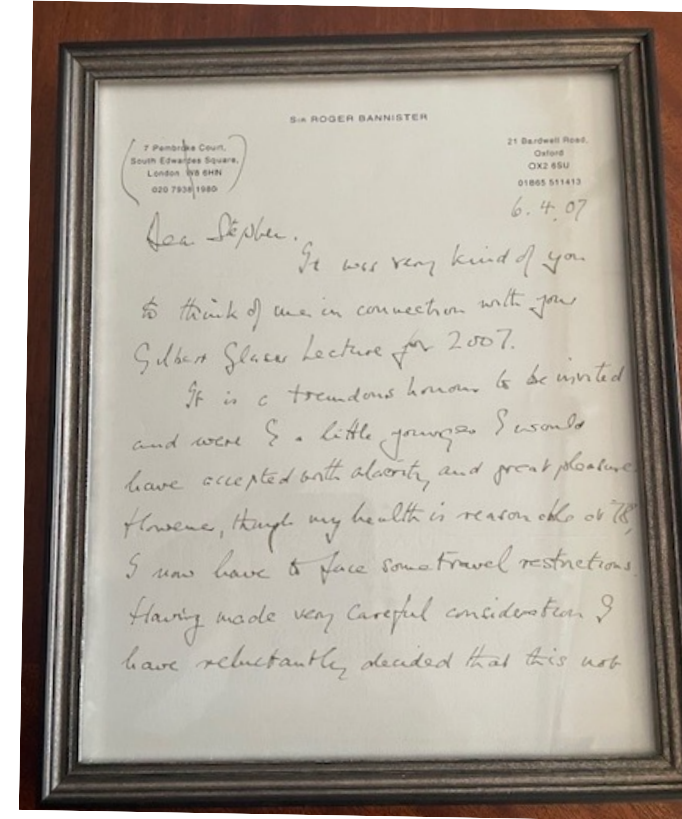 Sir ROGER BANNISTER
7 Pembroke Court,
South Edwardes Square,
London W8 6HN
020 7938 1980
21 Bardwell Road,
Oxford
OX2 6SU
01865 511413
6.4.07
Dear Stephen.
It was very kind of you
to think of me in connection with your
Gilbert Glaser Lecture for 2007.
It is a tremendous honour to be invited
and were I a little younger I would
have accepted with alacrity and great pleasure
However, though my health is reasonable at 78,
I now have to face some travel restrictions.
Having made very careful consideration I
have reluctantly decided that this not